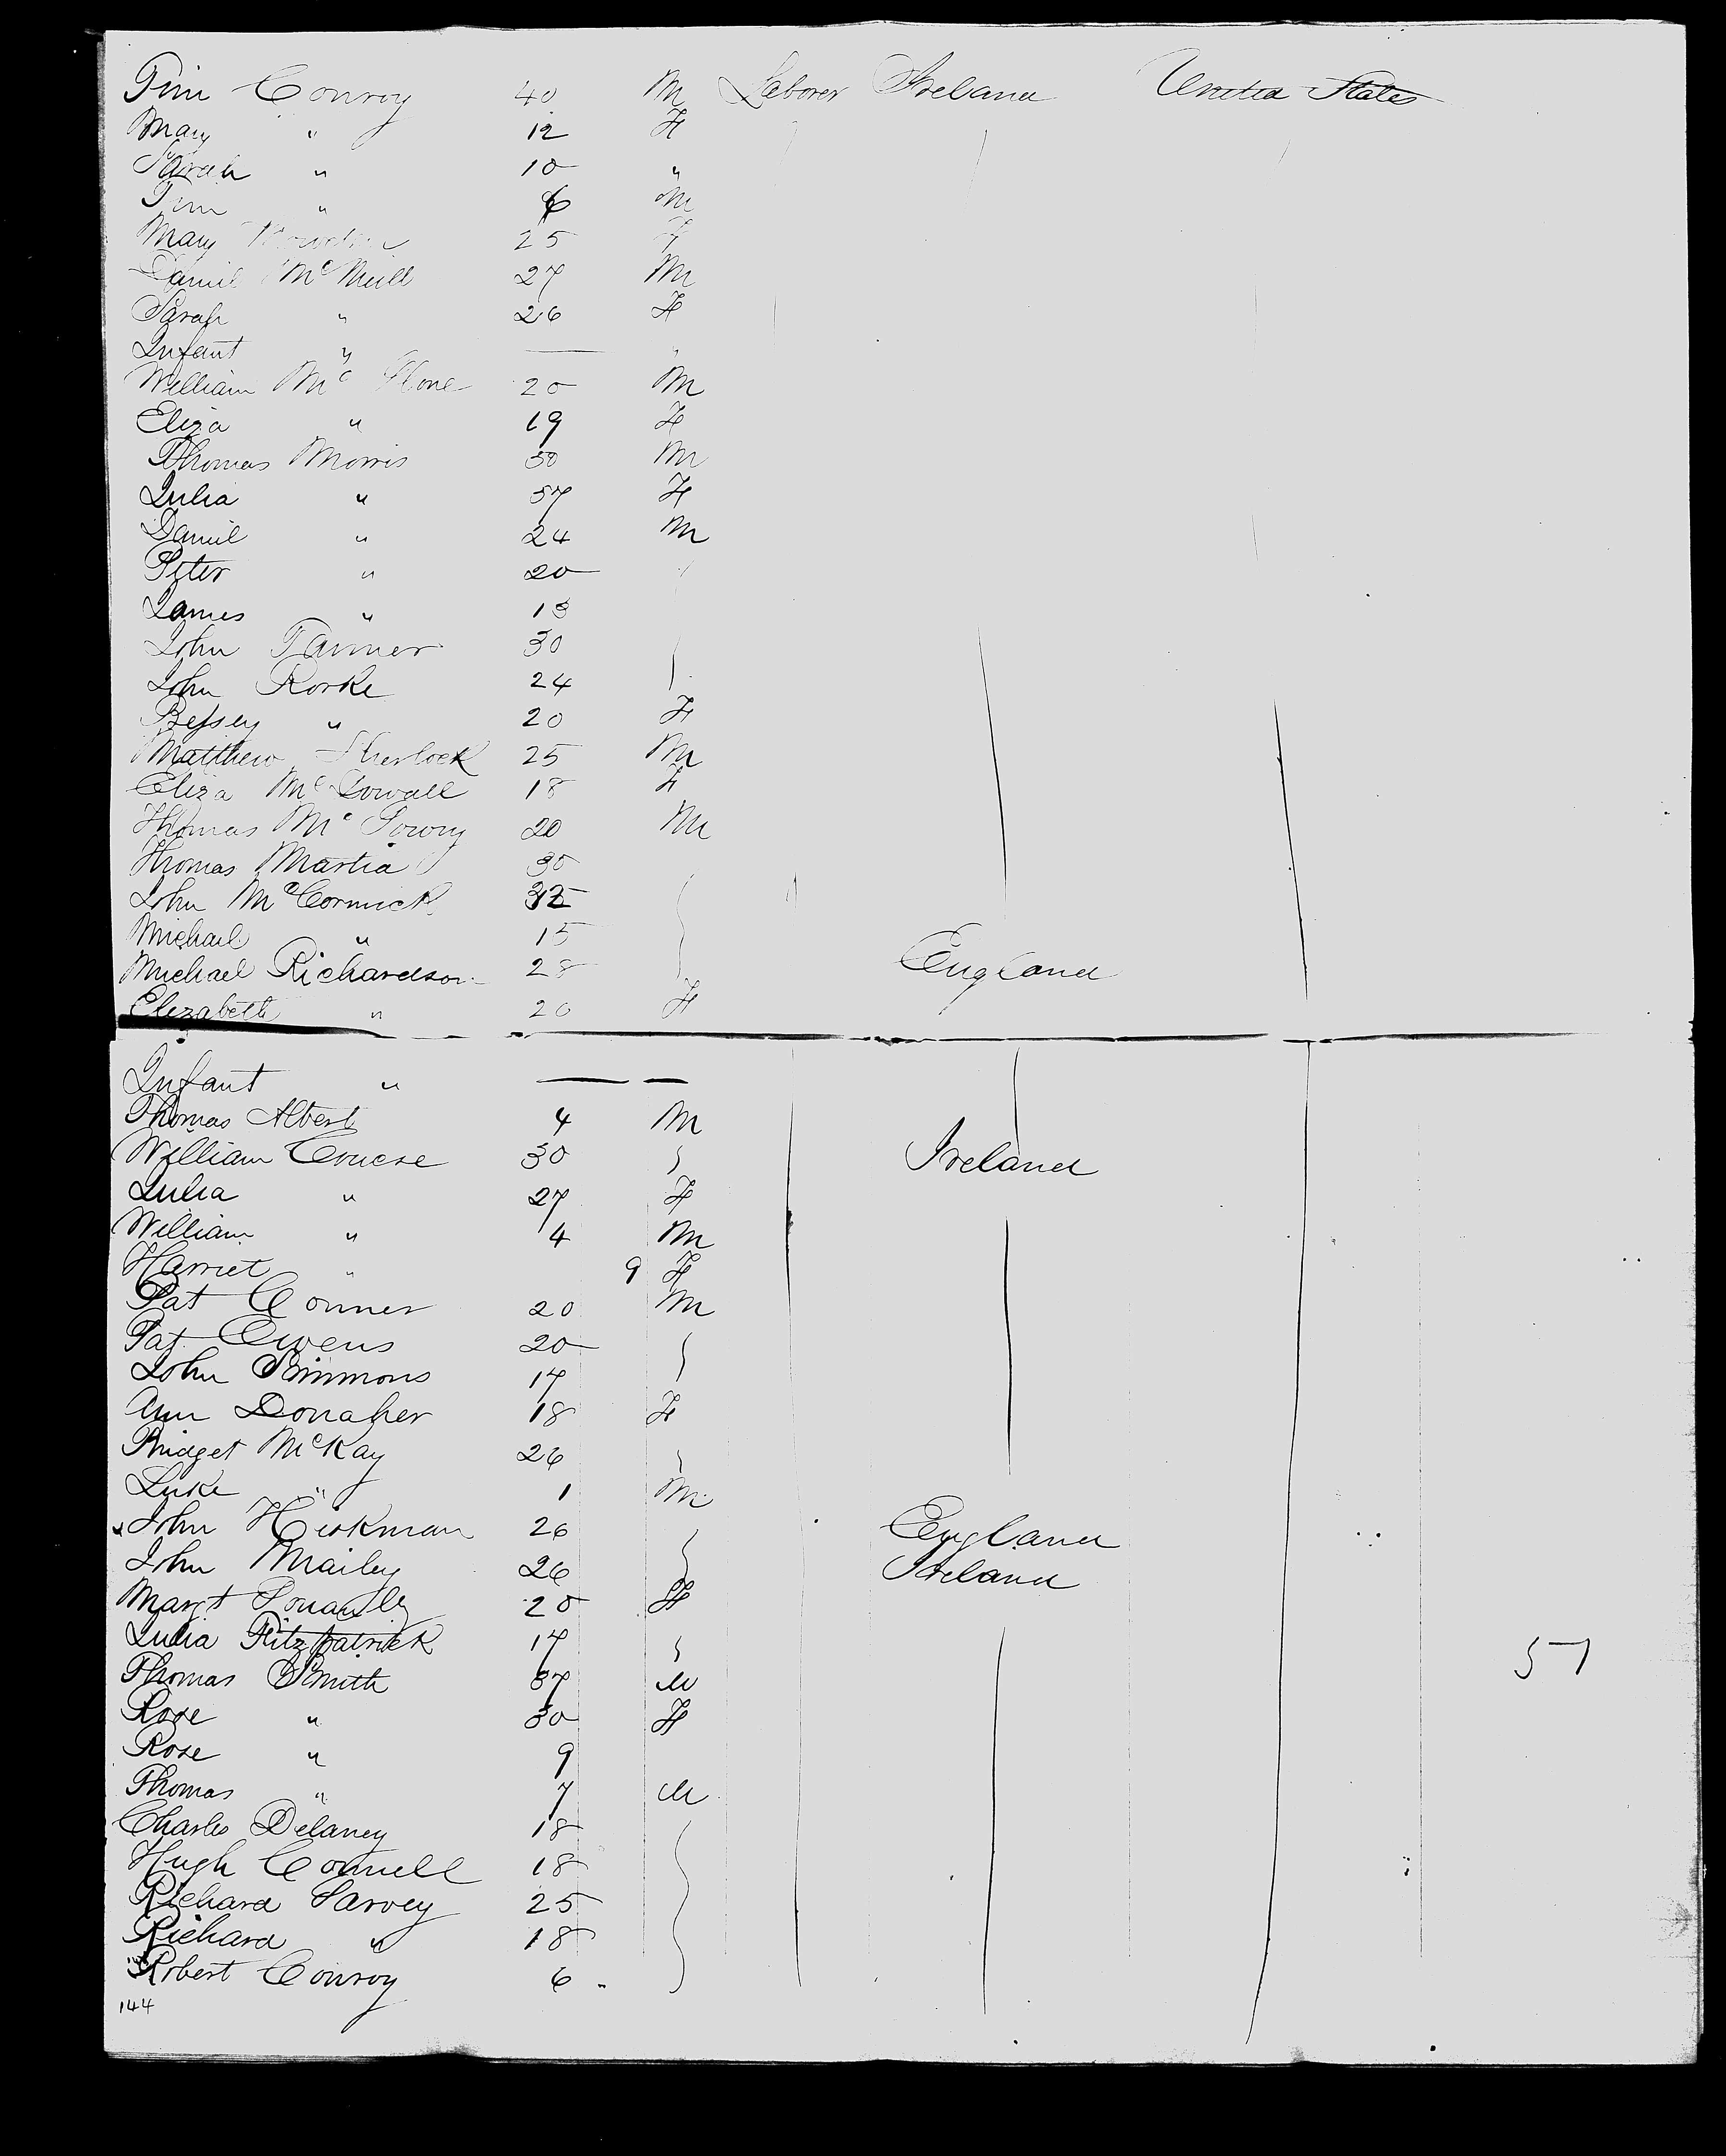 Tim Conroy 40 M Laborer Ireland United States
Mary " 12 F
Sarah " 10 "
Tim " 6 M
Mary 25 F
Daniel McNeill 27 M
Sarah " 26 F
Infant " — "
William Mc Hone 20 M
Eliza " 19 F
Thomas Morris 50 M
Julia " 57 F
Daniel " 24 M
Peter " 20
James " 13
John Tanner 30
John Rorke 24
Bessey " 20 F
Matthew Sherlock 25 M
Eliza McDowall 18 F
Thomas Mc 20 M
Thomas Martia 30
John McCormick
Michail " 15
Michael Richardson 28 England
Elizabeth " 20 F
Infant " — —
Thomas Albert 4 M
William 30 Ireland
Julia " 27 F
William " 4 M
Harriet " 9 F
Pat Conner 20 M
Pat Owens 20
John Simmons 17
Ann Donaher 18 F
Bridget McKay 26
Luke " 1 M
John Hickman 26 England
John Mailey 26 Ireland
Margt 20 F
Julia Fitzpatrick 17
Thomas Smith 37 M
Rose " 30 F
Rose " 9
Thomas " 7 M
Charles Delaney 18
Hugh Connell 18
Richard Garvey 25
Richard " 18
Robert Conroy 6 "
144